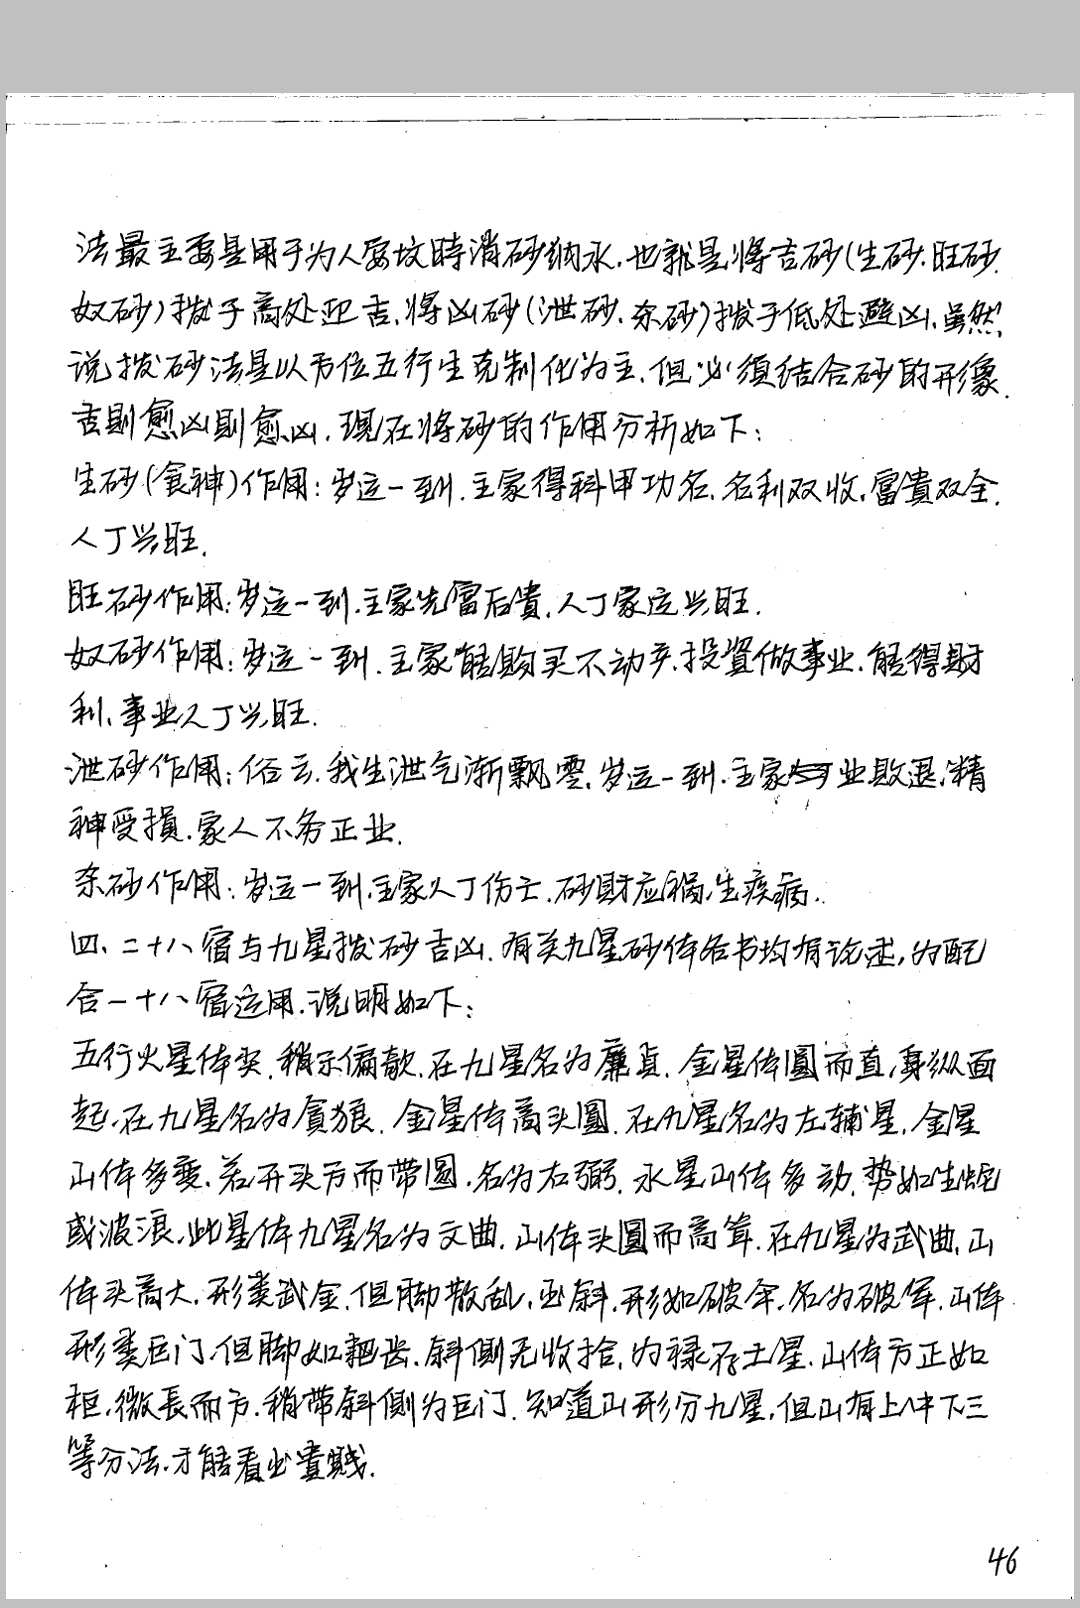 法最主要是用于为人安坟時消砂纳水.也就是.将吉砂(生砂.旺砂.
奴砂)拨于高处迎吉.将凶砂(泄砂.杀砂)拨于低处避凶.虽然
说拨砂法是以方位五行生克制化为主.但必须结合砂的形像.
吉則愈凶則愈凶.現在将砂的作用分析如下:
生砂(食神)作用:岁运一到.主家得科甲功名.名利双收.富貴双全.
人丁兴旺.
旺砂作用:岁运一到.主家先富后貴.人丁家运兴旺.
奴砂作用:岁运一到.主家能购买不动产.投資做事业.能得財
利.事业人丁兴旺.
泄砂作用:俗云.我生泄气渐飘零.岁运一到.主家业敗退.精
神受損.家人不务正业.
杀砂作用:岁运一到.主家人丁伤亡.砂財应祸.生疾病.
四、二十八宿与九星拨砂吉凶.有关九星砂体各书均有论述,为配
合一十八宿运用.说明如下:
五行火星体尖.稍示偏欹.在九星名为廉貞.金星体圓而直,身纵面
起.在九星名为貪狼.金星体高头圓.在九星名为左辅星.金星
山体多変.若开头方而带圓.名为右弼.水星山体多动.势如生蛇
或波浪.此星体九星名为文曲.山体头圓而高耸.在九星为武曲.山
体头高大.形类武金.但脚散乱.歪斜.形如破伞.名为破军.山体
形类巨门.但脚如耙齿.斜側无收拾.为禄存土星.山体方正如
柜.微長而方.稍带斜側为巨门.知道山形分九星.但山有上中下三
等分法.才能看出貴贱.
46